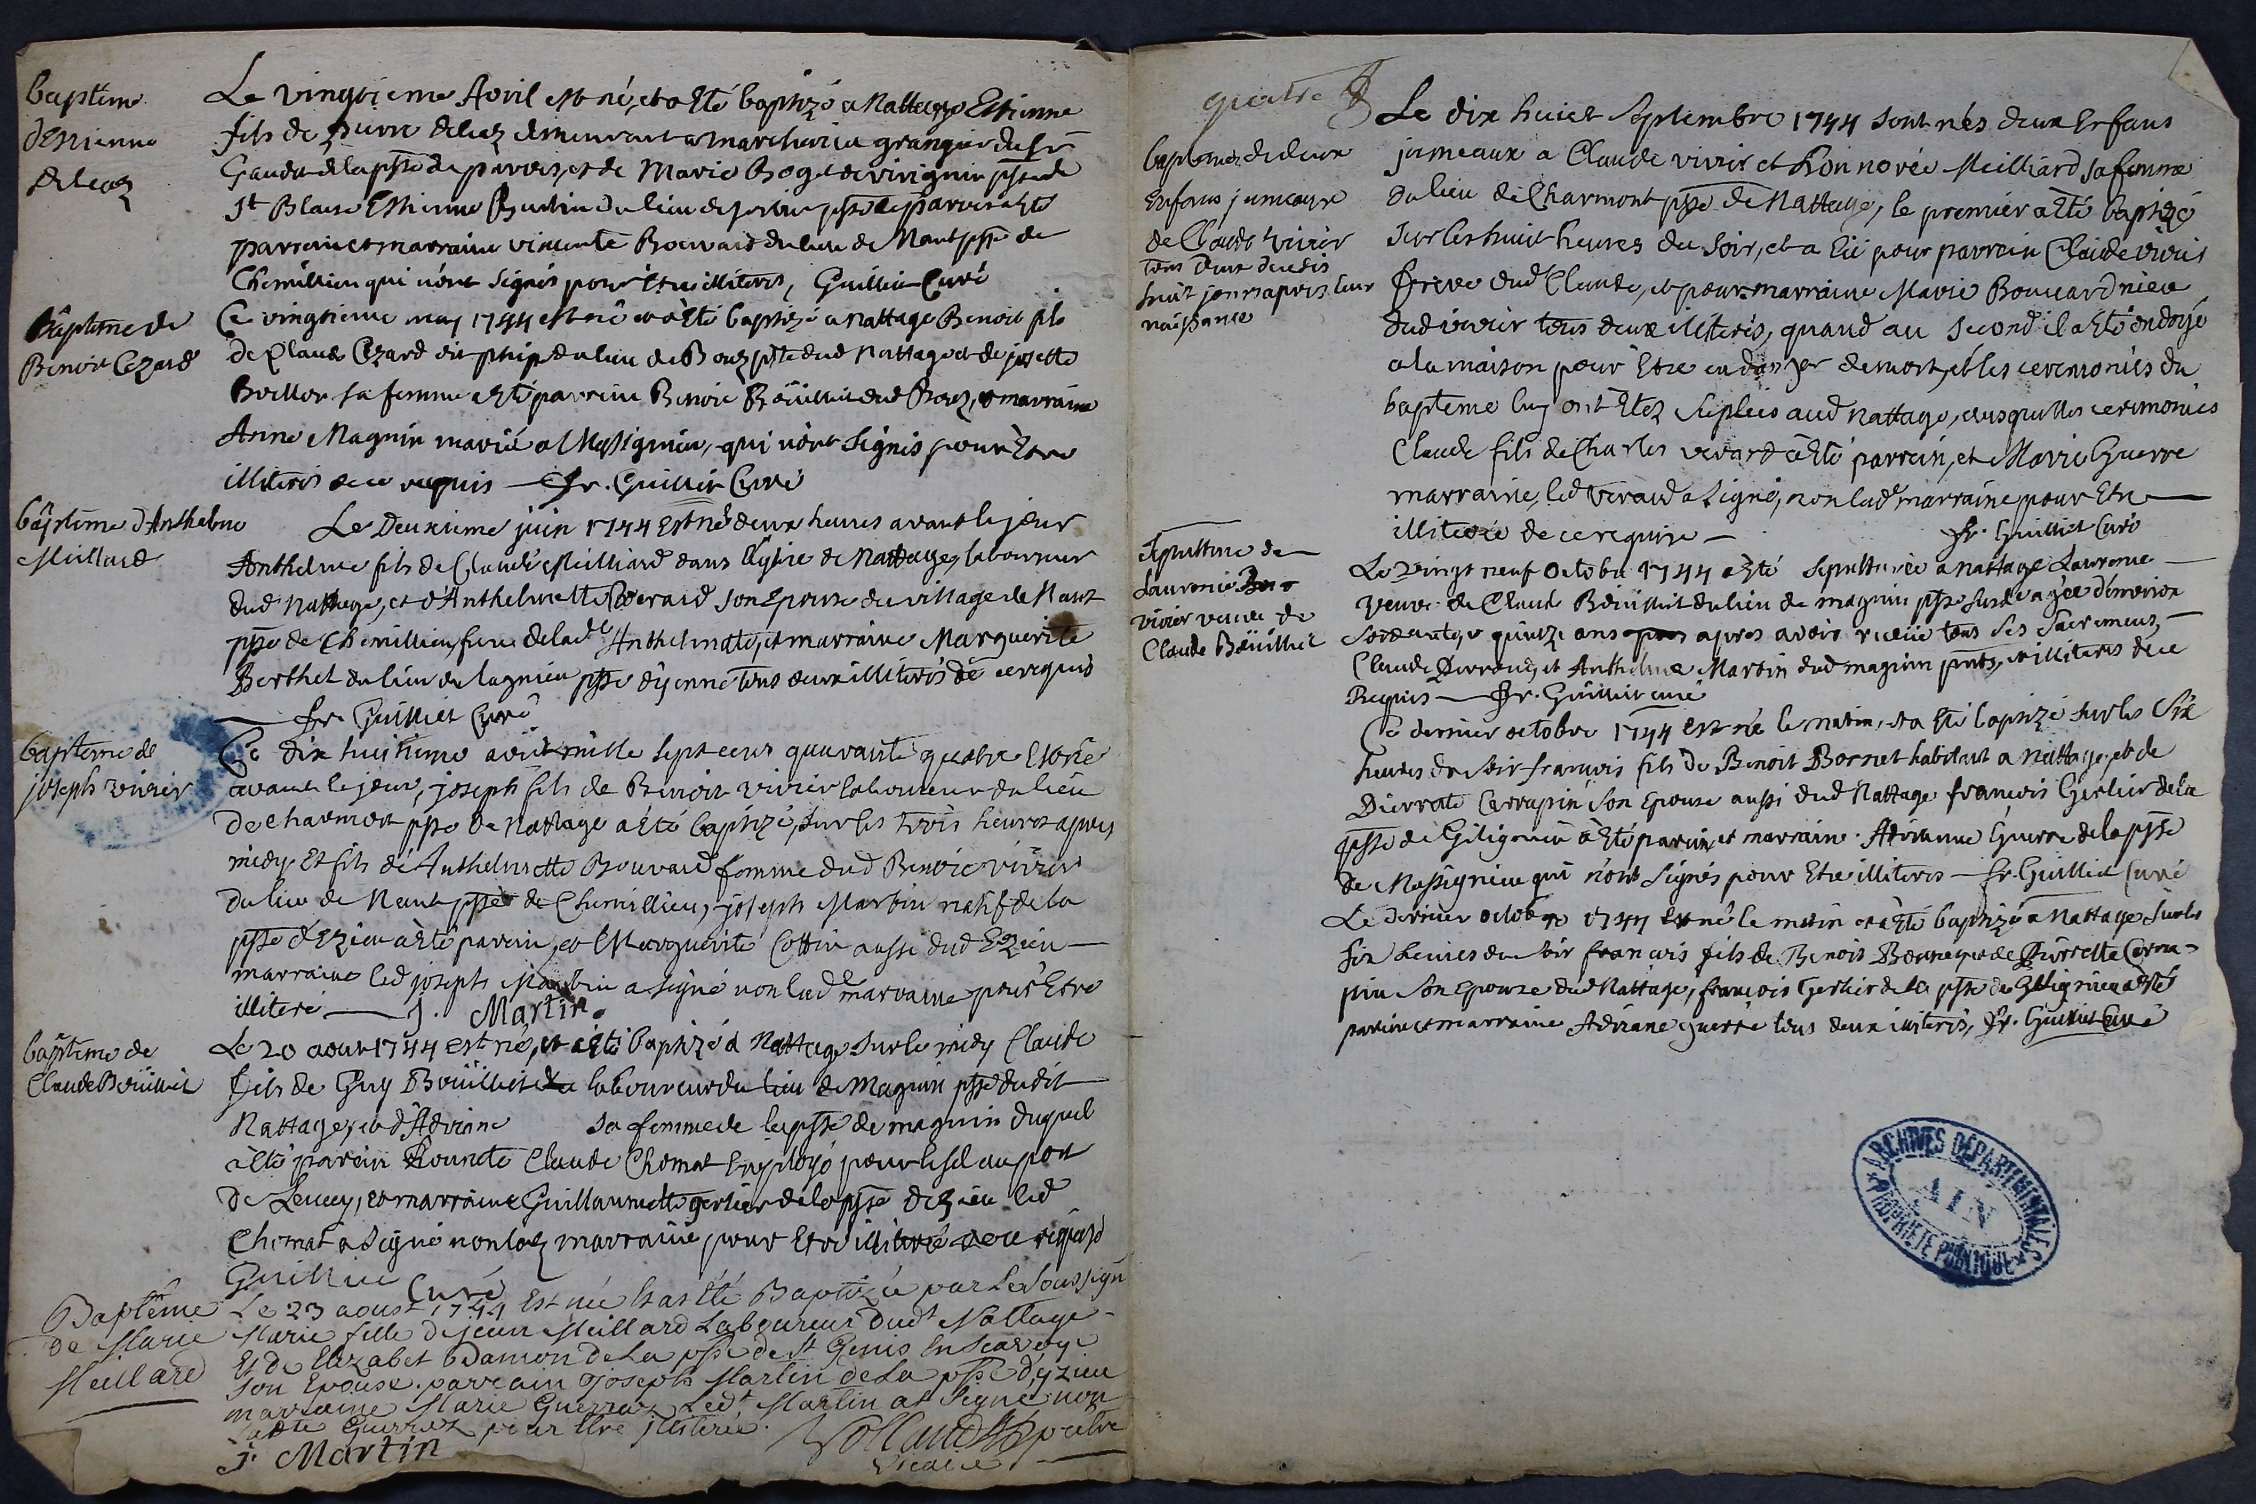 baptême
d'Etienne
Deleaz
Le vingtieme Avril est né, et a esté baptizé a Nattage Estienne
fils de pierre deleaz demeurant a marchoiru grangier du Sr
Gaudet de la psse de parves, et de Marie Boge de virignin psse de
St Blaise Esthienne du lieu de psse de parves a esté
parrain et marraine vincente Bouvard du lieu de Nant psse de
Chemillieu qui n'ont signés pour être illiteres, Guilliet Curé
Baptême de
Benoit Cezard
Ce vingtieme may 1744 est né et a esté baptizé a nattage Benoit fils
de Claude Cezard dit du lieu de Bouz psse dud Nattage et de josette
Boillor sa femme a esté parrain Benoit Boüilliet dud Bouz, et marraine
Anne Magnin marié a Massignieu, qui n'ont signés pour Etre
illiteres de ce requis fr. Guilliet Curé
baptême d'Anthelme
Meillard
Le Deuxieme juin 1744 est né deux heures avant le jour
Anthelme fils de Claude Meilliard dans l'Eglise de Nattage, laboureur
dud Nattage, et d'Anthelmette Boverard son Epouse du village de Nant
psse de Chemillieu, de lad Anthelmette, et marraine Marguerite
Berthet du lieu de lagnieu psse d'yenne tous deux illiteres de ce requis
fr. Guilliet Curé
baptême de
joseph vivier
Ce dix huitieme aoüt mille sept cens quarante quatre
avant le jour, joseph fils de Benoit vivier laboureur du lieu
de charmont psse de Nattage a esté baptizé, sur les trois heures apres
midy Et fils d'Anthelmette Bouvard femme dud Benoit vivier
du lieu de Nant psse de Chemillieu, joseph Martin natif de la
psse d'Ezieu a esté parrain, et Marguerite Cottin aussi dud Ezieu
marraine led joseph Martin a signé non lad marraine pour Etre
illitere J. Martin.
baptême de
Claude Boüilliet
Le 20 aout 1744 est né, et a esté baptizé a Nattage sur le midy Claude
fils de Guy Boüilliet laboureur du lieu de Magnin psse dudit
Nattage, et d'Adriane sa femme de la psse de magnin duquel
a esté parrain Claude Chomat Employé pour le sel au port
de Leucey, et marraine Guillaumette gerlier de la psse d'Ezieu led
Chomat a signé non laz marraine pour Etre illiterée de ce requise
Guilliet Curé
Baptême
de Marie
Meillard
Le 23 aoust 1744 Est née Et a Eté Baptizée par Le Soussigné
Marie fille de jean Meillard Laboureur dudt Nattage
Et de Elizabet Damon de La psse de St Genis En Savoye
Son Epouse. parrain joseph Martin de La psse d'yzieu
marraine Marie Guerraz Ledt Martin at signé non
ladte Guerraz pour Etre jlliterée.
J. Martin
prêtre
vicaire
quatre
baptemes de deux
Enfans jumeaux
de Claude vivier
tous deux
huit jours apres leur
naissance
Le dix huict Septembre 1744 sont nés deux Enfans
jumeaux a Claude vivier et honnorée Meilliard sa femme
du lieu de Charmont psse de Nattage, le premier a esté baptizé
sur les huit heures du soir, et a Eü pour parrain Claude vivier
frere dud Claude, et pour marraine Marie Bouvard niece
dud vivier tous deux illiteres, quand au second il a esté ondoyé
a la maison pour Etre en danger de mort, et les ceremonies du
bapteme luy ont Etez suplées aud Nattage, ausquelles ceremonies
Claude fils de Charles verard a esté parrain, et Marie Guerre
marraine, led verard a signé, non lad marraine pour Etre
illiterée de ce requise fr. Guilliet Curé
Sepulture de
Laurence
vivier veuve de
Claude Boüilliet
Le vingt neuf Octobre 1744 a esté sepulturée a nattage Laurence
veuve de Claude Boüilliet du lieu de magnin psse susd agée d'environ
soixante, quinze ans apres avoir receüe tous ses sacremens,
Claude et Anthelme Martin dud magnin pnts, et illiteres de ce
Requis fr. Guilliet curé
Ce dernier octobre 1744 est né le matin, et a esté baptizé sur les Six
heures du soir francois fils de Benoit Bornet habitant a nattage, et de
Pierrette Carrapin son Epouse aussi dud Nattage francois Gerlier de la
psse de Giligneu a esté parrain, et marraine Adrianne Guerre de la psse
de Massignieu qui n'ont signés pour Etre illiteres fr. Guilliet Curé
Le dernier octobre 1744 est né le matin et a esté baptizé a Nattage sur les
six heures du soir francois fils de Benoit Bornet et de Pierrette Carra-
pin son epouse dud Nattage, francois Gerlier de la psse de Giligneu a esté
parrain et marraine Adriane guerre tous deux illiteres, fr. Guilliet Curé
ARCHIVES DÉPARTEMENTALES
AIN
PROPRIÉTÉ PUBLIQUE